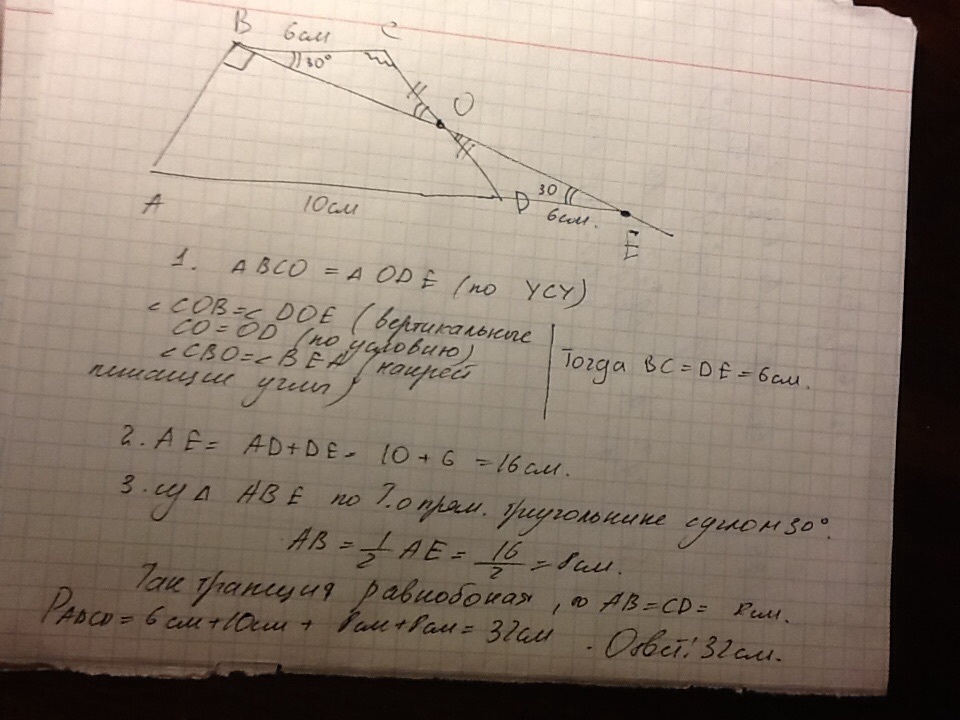 B 6см C
30°
O
30
A 10см D 6см.
E
1. ΔBCO = ΔODE (по УСУ)
<COB=<DOE (вертикальные
CO=OD (по условию)
<CBO=<BEA (накрест
лежащие углы)
Тогда BC=DE=6см.
2. AE= AD+DE= 10+6 =16см.
3. из Δ ABE по Т.о прям. треугольнике с углом 30°.
AB = 1/2 AE = 16/2 = 8см.
Так трапеция равнобокая, то AB=CD= 8см.
PABCD = 6см+10см+ 8см+8см= 32см . Ответ: 32см.